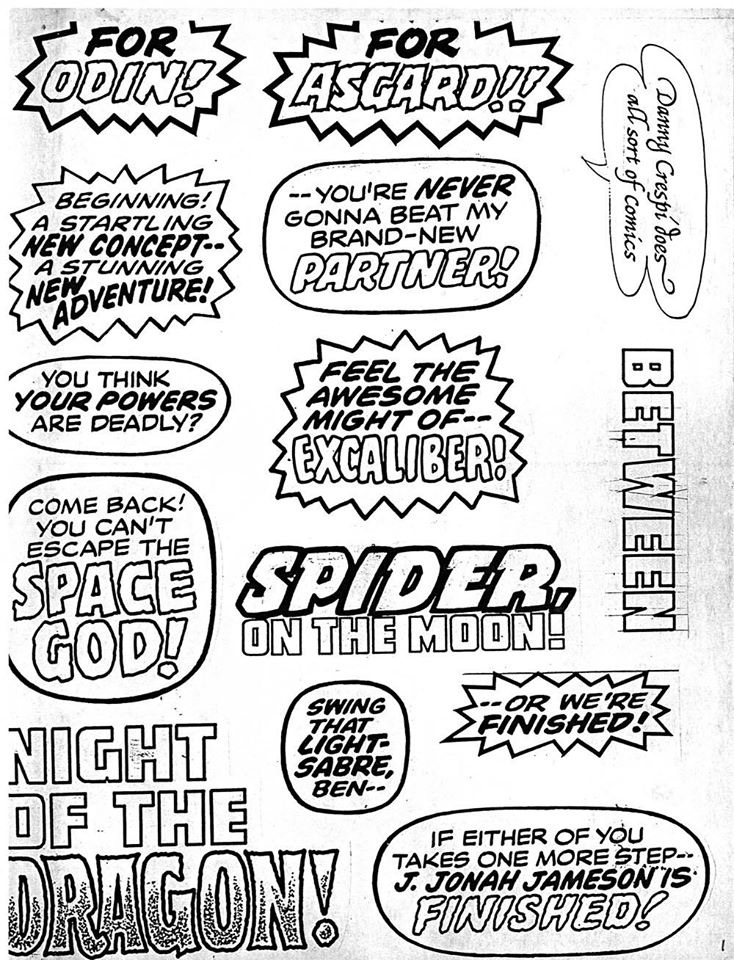 FOR
ODIN!
FOR
ASGARD!!
Danny Crespi does
all sort of Comics
BEGINNING!
A STARTLING
NEW CONCEPT--
A STUNNING
NEW
ADVENTURE!
--YOU'RE NEVER
GONNA BEAT MY
BRAND-NEW
PARTNER!
YOU THINK
YOUR POWERS
ARE DEADLY?
FEEL THE
AWESOME
MIGHT OF--
EXCALIBER!
BETWEEN
COME BACK!
YOU CAN'T
ESCAPE THE
SPACE
GOD!
SPIDER,
ON THE MOON!
SWING
THAT
LIGHT-
SABRE,
BEN--
--OR WE'RE
FINISHED!
NIGHT
OF THE
DRAGON!
IF EITHER OF YOU
TAKES ONE MORE STEP--
J. JONAH JAMESON IS
FINISHED!
1